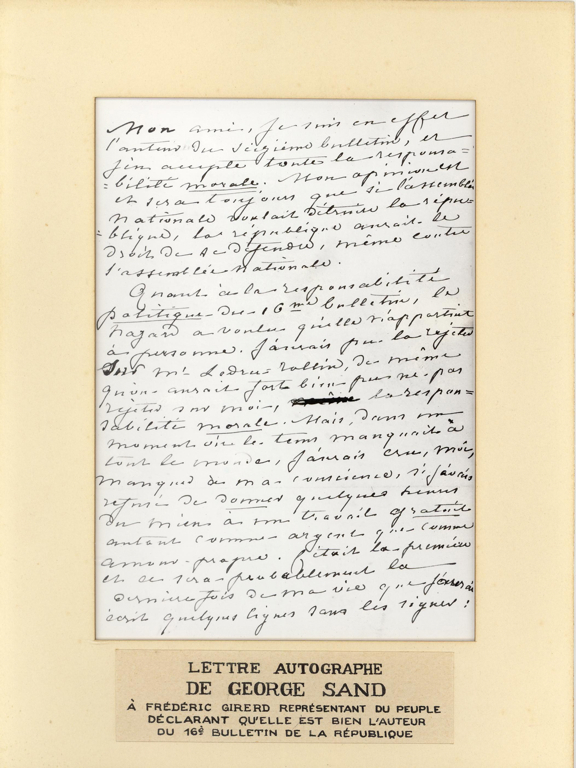 Mon ami, je suis en effet
l'auteur du seizième bulletin, et
j'en accepte toute la responsa=
=bilité morale. Mon opinion est
et sera toujours que si l'assemblée
nationale voulait détruire la répu=
=blique, la république aurait le
droit de se défendre, même contre
l'assemblée nationale.
Quant à la responsabilité
politique du 16me bulletin, le
hazard a voulu qu'elle n'appartint
à personne. J'aurais pu la rejeter
sur Mr Ledru-Rollin, de même
qu'on aurait fort bien pu ne pas
rejeter sur moi, la respon=
sabilité morale. Mais, dans un
moment où le tems manquait à
tout le monde, j'aurais cru, moi,
manquer de ma conscience, si j'avais
refusé de donner quelques heures
du mien à un travail gratuit
autant comme argent que comme
amour-propre. C'était la première
et ce sera probablement la
dernière fois de ma vie que j'aurai
écrit quelques lignes sans les signer.
LETTRE AUTOGRAPHE
DE GEORGE SAND
À FRÉDÉRIC GIRERD REPRÉSENTANT DU PEUPLE
DÉCLARANT QU'ELLE EST BIEN L'AUTEUR
DU 16è BULLETIN DE LA RÉPUBLIQUE